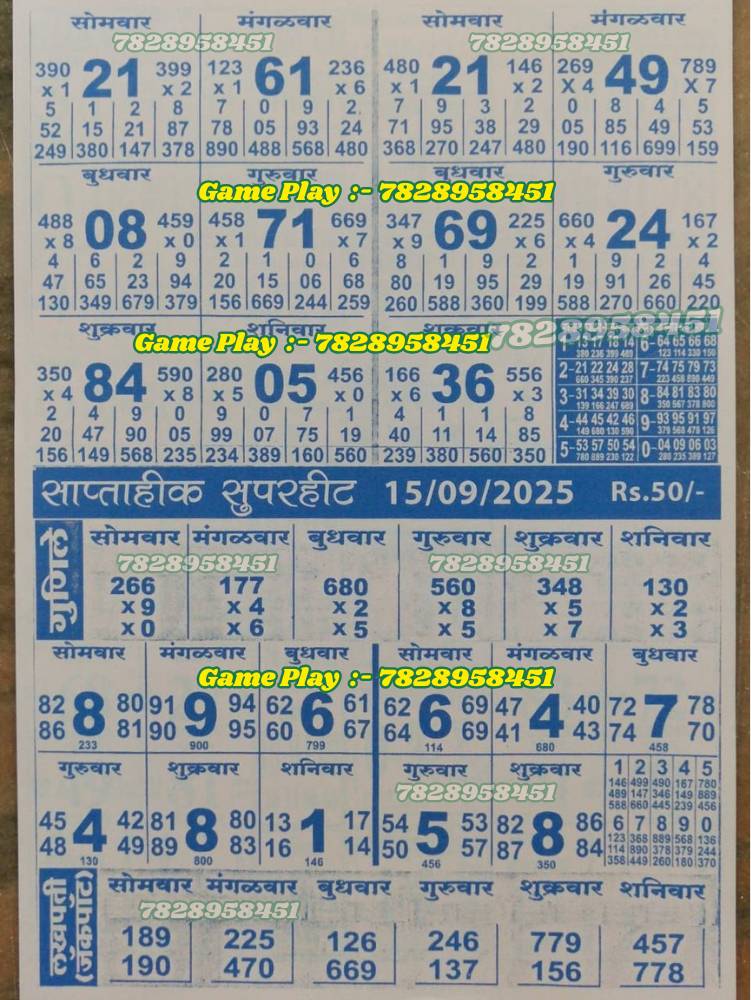 सोमवार मंगळवार सोमवार मंगळवार
7828958451 7828958451
390 21 399 123 61 236 480 21 146 269 49 789
x 1 x 2 x 1 x 6 x 1 x 2 X 4 X 7
5 1 2 8 7 0 9 2 7 9 3 2 0 8 4 5
52 15 21 87 78 05 93 24 71 95 38 29 05 85 49 53
249 380 147 378 890 488 568 480 368 270 247 480 190 116 699 159
बुधवार गुरुवार बुधवार गुरुवार
Game Play :- 7828958451
488 08 459 458 71 669 347 69 225 660 24 167
x 8 x 0 x 1 x 7 x 9 x 6 x 4 x 2
4 6 2 9 2 1 0 6 8 1 9 2 1 9 2 4
47 65 23 94 20 15 06 68 80 19 95 29 19 91 26 45
130 349 679 379 156 669 244 259 260 588 360 199 588 270 660 220
शुक्रवार शनिवार शुक्रवार 7828958451
Game Play :- 7828958451
350 84 590 280 05 456 166 36 556
x 4 x 8 x 5 x 0 x 6 x 3
2 4 9 0 9 0 7 1 4 1 1 8
20 47 90 05 99 07 75 19 40 11 14 85
156 149 568 235 234 389 160 560 239 380 560 350
6-64 65 66 68
380 236 399 489 123 114 330 150
2-21 22 24 28 7-74 75 79 73
660 345 390 237 223 456 890 449
3-31 34 39 30 8-84 81 83 80
139 166 247 689 350 567 378 800
4-44 45 42 46 9-93 95 91 97
149 680 130 590 379 568 478 126
5-53 57 50 54 0-04 09 06 03
780 889 230 122 280 235 389 127
साप्ताहीक सुपरहीट 15/09/2025 Rs.50/-
गुणिले
सोमवार मंगळवार बुधवार गुरुवार शुक्रवार शनिवार
7828958451 7828958451
266 177 680 560 348 130
x 9 x 4 x 2 x 8 x 5 x 2
x 0 x 6 x 5 x 5 x 7 x 3
सोमवार मंगळवार बुधवार सोमवार मंगळवार बुधवार
Game Play :- 7828958451
82 8 80 91 9 94 62 6 61 62 6 69 47 4 40 72 7 78
86 81 90 95 60 67 64 69 41 43 74 70
233 900 799 114 680 458
गुरुवार शुक्रवार शनिवार गुरुवार शुक्रवार
7828958451
45 4 42 81 8 80 13 1 17 54 5 53 82 8 86
48 49 89 83 16 14 50 57 87 84
130 800 146 456 350
1 2 3 4 5
146 499 490 167 780
489 147 346 149 889
588 660 445 239 456
6 7 8 9 0
123 368 889 568 136
114 890 378 379 244
358 449 260 180 370
लखपती
(जॅकपॉट)
सोमवार मंगळवार बुधवार गुरुवार शुक्रवार शनिवार
7828958451 7828958451
189 225 126 246 779 457
190 470 669 137 156 778